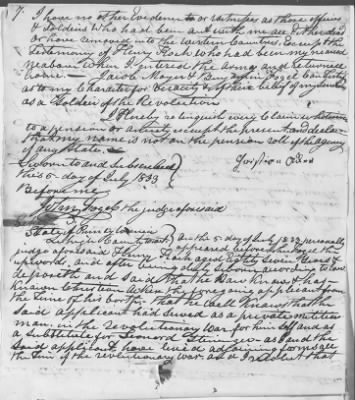 7.
I have no other Evidence to or witness as those officers
& Soldiers Who had been out with me are Either dies
or have removed into the western Countries. Except the
Testimony of Henry Frack Who had been my nearest
neabour when I interet the army and returned
home — Jacob Moyer & Benjamin Fogel Can testify
as to my Character for veracity & of their belief of my
as a Soldier of the Revolution
I Hereby relinquish every Claim whatever
to a pension or anuety except the present and declare
that my name is not on the pension role of the agency
of any State.
Sworn to and Subscribed
this 5th day of July 1833
Before me
John Fogel the judge aforesaid
State of Pennsylvania
Lehigh County to wit } on the 5th day of July 1833 personally
appeared before the
judge aforesaid Henry Frack aged Eighty Seven Years &
upwards, and after being duly Sworn according to law
deposeth and said that He Has Know the
Known Christian the foregoing applicant from
the time of his berth. that he well Knows that the
Said applicant had Served as a private militia
man in the revolutionary War for him self and as
a Substitute for Leonard as I and the
Said applicant have lived adjoining farms all
the time of the revolutionary war as a that